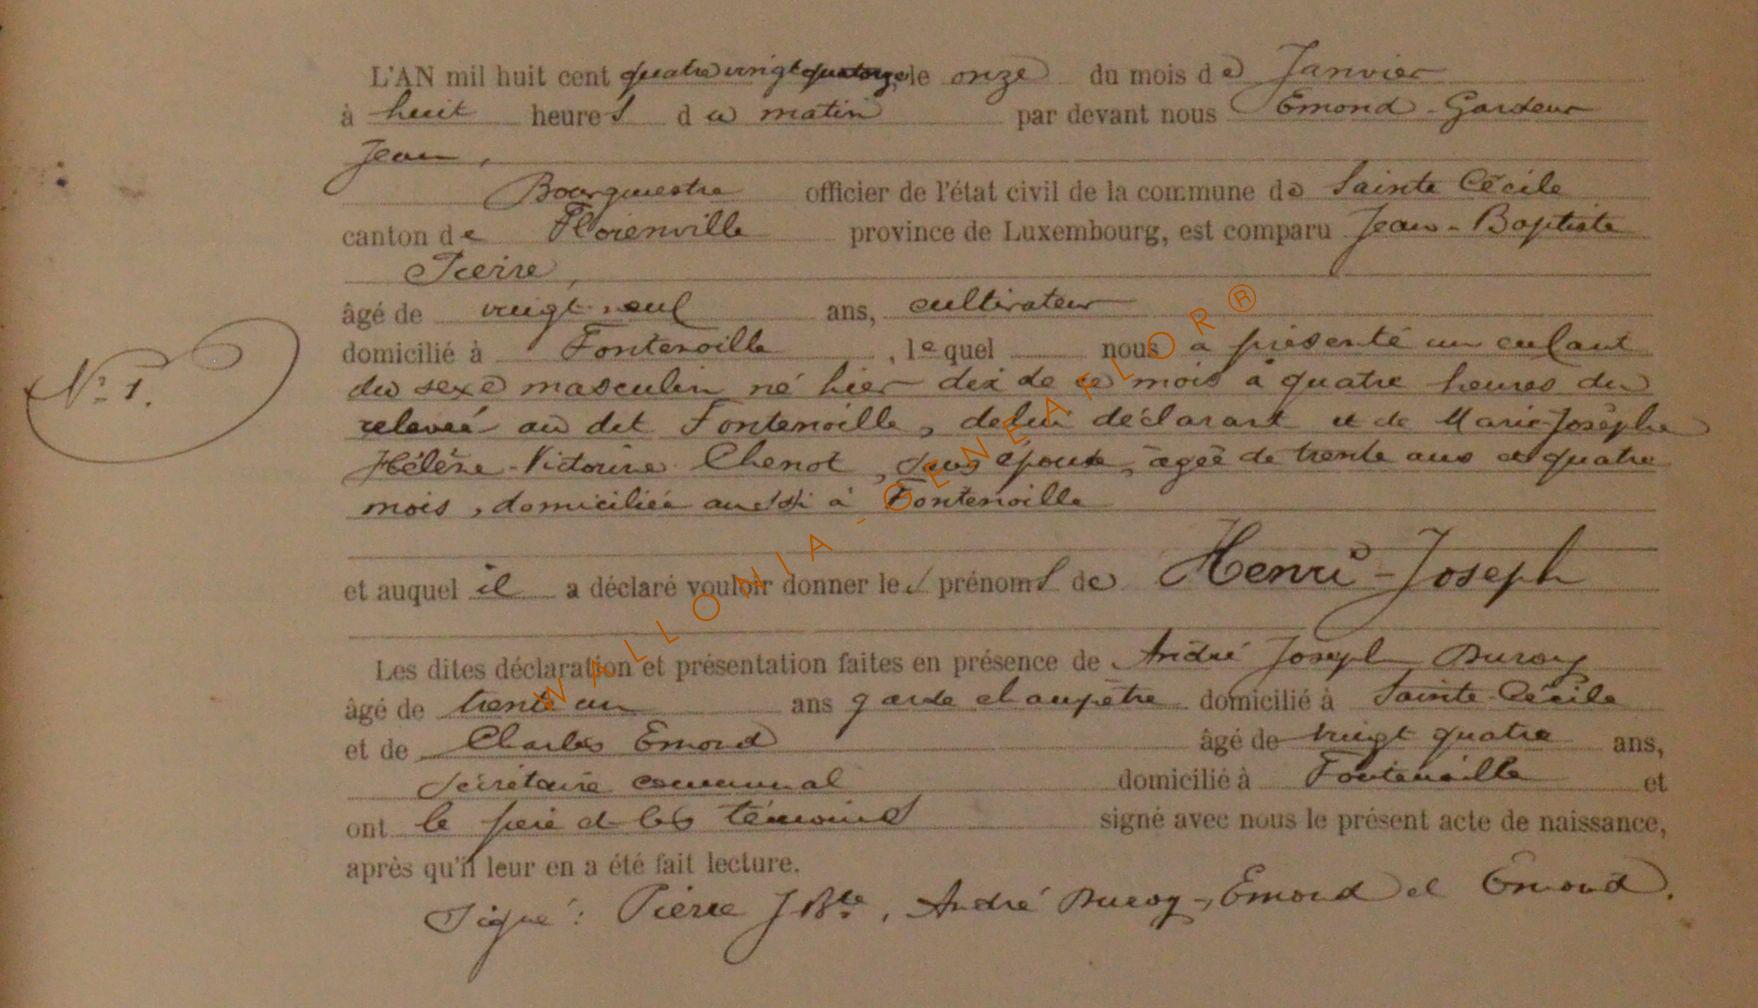 L'AN mil huit cent quatre vingt quatorze, le onze du mois de Janvier
à huit heures du matin par devant nous Emond-Gardeur
Jean,
Bourgmestre officier de l'état civil de la commune de Sainte Cécile
canton de Florenville province de Luxembourg, est comparu Jean-Baptiste
Pierre,
âgé de vingt neuf ans, cultivateur
domicilié à Fontenoille, lequel nous a présenté un enfant
N° 1.
du sexe masculin né hier dix de ce mois à quatre heures du
relevée au dit Fontenoille, de lui déclarant et de Marie-Josèphe
Hélène-Victorine Chenot, son épouse, âgée de trente ans et quatre
mois, domiciliée aussi à Fontenoille
et auquel il a déclaré vouloir donner les prénoms de Henri-Joseph
Les dites déclaration et présentation faites en présence de André Joseph Duroy
âgé de trente un ans garde champêtre domicilié à Sainte-Cécile
et de Charles Emond âgé de vingt quatre ans,
Secrétaire communal domicilié à Fontenoille et
ont le père et les témoins signé avec nous le présent acte de naissance,
après qu'il leur en a été fait lecture.
Signé: Pierre J Bte, André Duroy, Emond et Emond.
WALLONIA-GENEAFLOR®